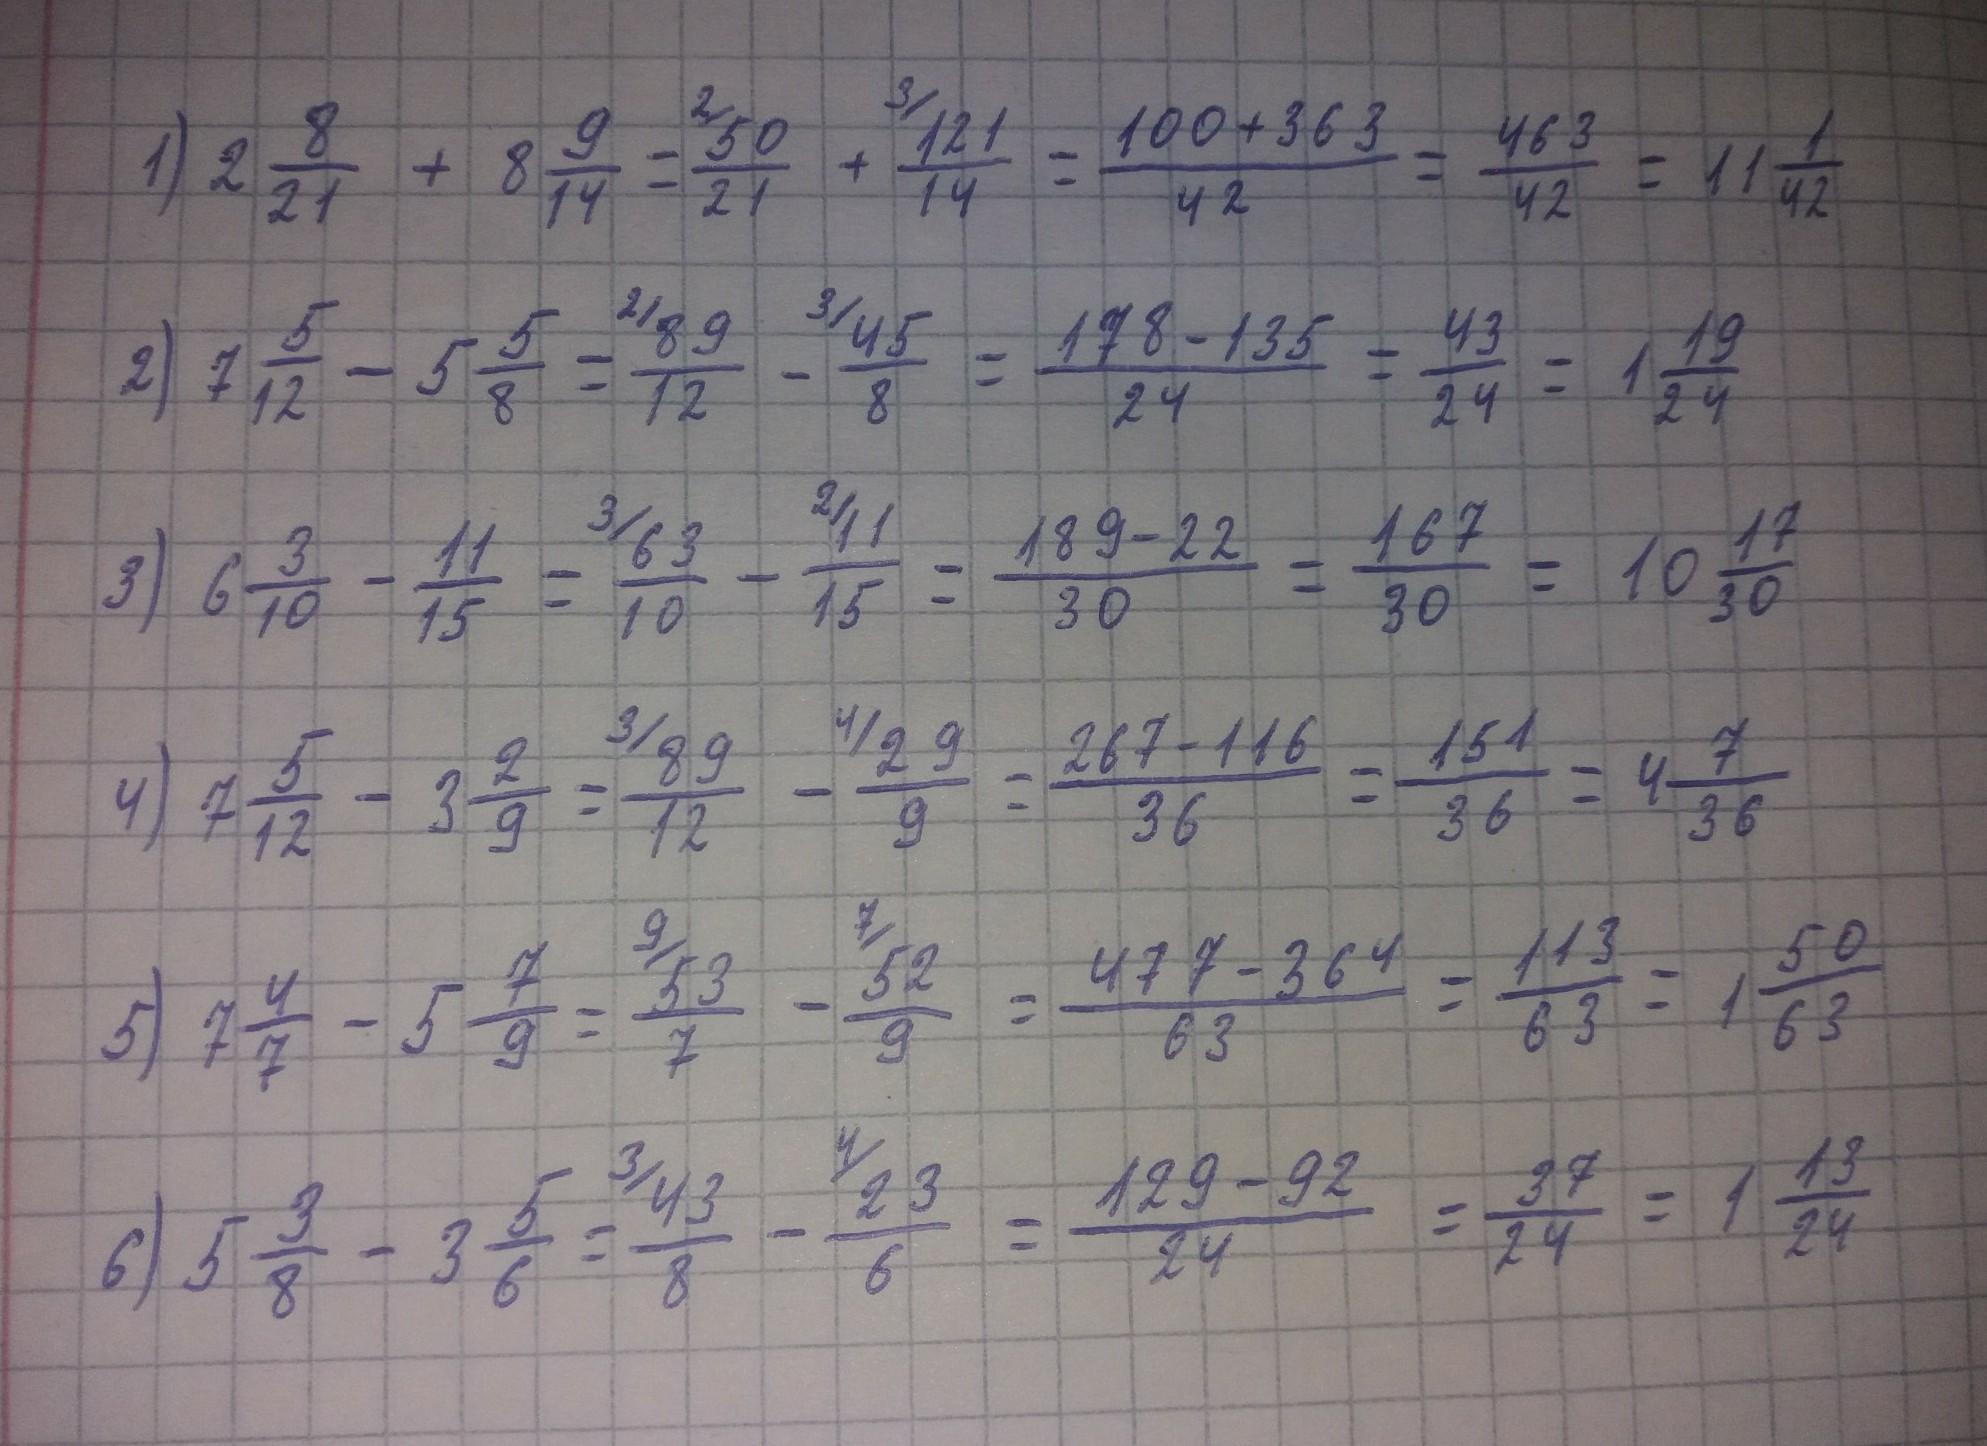 1) 2 8/21 + 8 9/14 = 2/ 50/21 + 3/ 121/14 = (100+363)/42 = 463/42 = 11 1/42
2) 7 5/12 - 5 5/8 = 2/ 89/12 - 3/ 45/8 = (178-135)/24 = 43/24 = 1 19/24
3) 6 3/10 - 11/15 = 3/ 63/10 - 2/ 11/15 = (189-22)/30 = 167/30 = 10 17/30
4) 7 5/12 - 3 2/9 = 3/ 89/12 - 4/ 29/9 = (267-116)/36 = 151/36 = 4 7/36
5) 7 4/7 - 5 7/9 = 9/ 53/7 - 7/ 52/9 = (477-364)/63 = 113/63 = 1 50/63
6) 5 3/8 - 3 5/6 = 3/ 43/8 - 4/ 23/6 = (129-92)/24 = 37/24 = 1 13/24